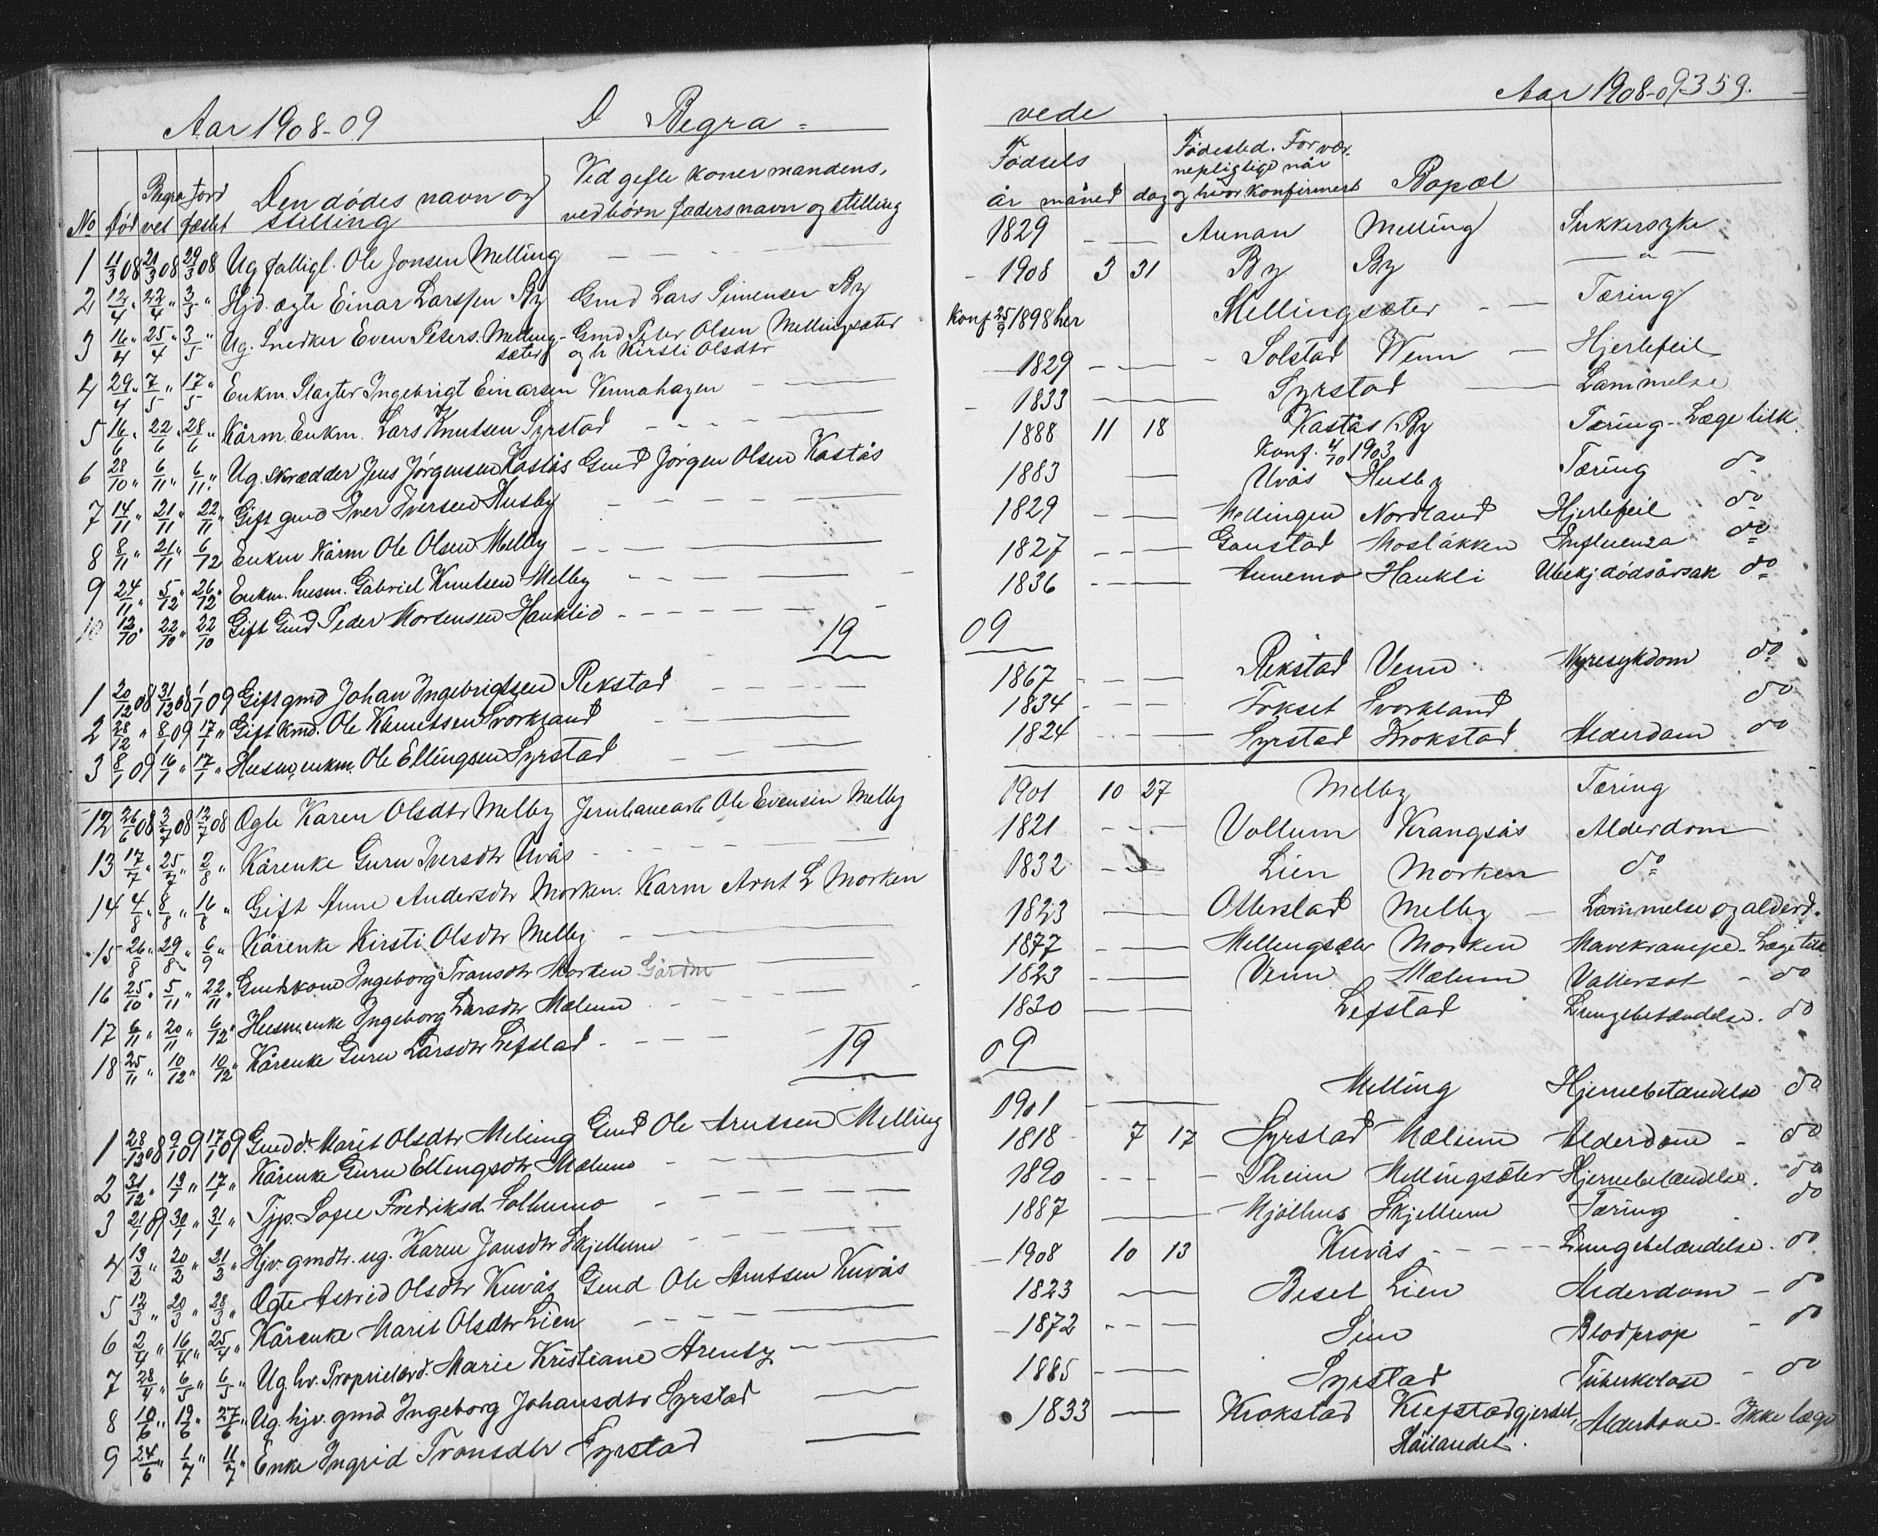 Aar 1908-09
D Begra-
No
Død
Begra
vet
Jord
fæstet
Den dødes navn og
stilling
Ved gifte koner mandens,
ved børn faders navn og stilling
1 11/3 08 21/3 08 29/3 08 Ug. føllgl. Ole Jonsen Melling
2 12/4 " 22/4 " 3/5 " Hjd. ægte Einar Larssen By Gmd Lars Simensen By
3 16/4 " 25/4 " 3/5 " Ug. Snedker Even Peters. Melling- Gmd Peter Olsen Mellingsæter
sæter og h Kirsti Olsdtr
4 29/4 " 7/5 " 17/5 " Enkm. Slagter Ingebrigt Einarsen Vennahagen
5 16/6 " 22/6 " 28/6 " Kårm. Enkm. Lars Knutsen Syrstad
6 28/10 " 6/11 " 6/11 " Ug. Skrædder Jens Jørgensen Kastås Gmd Jørgen Olsen Kastås
7 14/11 " 21/11 " 22/11 " Gift gmd Iver Iversen Husby
8 8/11 " 21/11 " 6/12 Enkm Kårm Ole Olsen Melby
9 24/11 " 5/12 " 26/12 " Enkm. husm. Gabriel Knutsen Melby
10 12/10 " 22/10 " 22/10 Gift Gmd Peder Mortensen Hauklid
19
1 20/12 08 31/12 08 1/1 09 Gift gmd Johan Ingebrigtsen Rekstad
2 28/12 " 8/1 09 17/1 " Gift Kmd. Ole Knutsen Svorkland
3 8/1 09 16/1 " 17/1 " Husm. enkm. Ole Ellingsen Syrstad
12 26/6 08 3/7 08 12/7 08 Ægte Karen Olsdtr Melby Jernbanearb. Ole Evensen Melby
13 17/7 " 25/7 " 2/8 " Kårenke Guru Iversdtr Uvås
14 4/8 " 8/8 " 16/8 " Gift Anne Andersdtr Morken. Karm Arnt L Morken
15 26/8 " 29/8 " 6/9 " Kårenke Kirsti Olsdtr Melby
16 25/10 " 5/11 " 22/11 " Gmdskone Ingeborg Transdtr Morken Gårdm
17 6/11 " 20/11 " 6/12 " Husm. enke Ingeborg Larsdtr Mælum
18 25/11 " 10/12 " 10/12 " Kårenke Guru Larsdtr Lefstad
19
1 28/12 08 9/1 09 17/1 09 Gmdd. Marit Olsdtr Melling Gmd Ole Arntsen Melling
2 31/12 " 13/1 " 17/1 " Kårenke Guru Ellingsdtr Mælum
3 21/1 09 30/1 " 31/1 " Tjp. Sofie Fredriksd. Solhumo
4 13/2 " 20/2 " 21/3 " Hjv. gmdtr. ug. Karen Jonsdtr Skjellum
5 12/3 " 20/3 " 28/3 " Ægte Astrid Olsdtr Kuvås Gmd Ole Arntsen Kuvås
6 2/4 " 16/4 " 25/4 " Kårenke Marit Olsdtr Lien
7 28/4 " 6/5 " 6/5 " Ug. hv. Proprietærd. Marie Kristiane Arentz
8 10/6 " 19/6 " 27/6 " Ug. hjv. gmd Ingeborg Johansdtr Syrstad
9 24/6 " 1/7 " 11/7 " Enke Ingrid Tronsdtr Syrstad
vede
Aar 1908-09 359.
Fødsels
år måned dag
Fødested. For vær-
nepligtige når
og hvor konfirmert
Bopæl
1829 Aunan Melling Sukkersyke
1908 3 31 By By "
Konf 25/9 1898 her Mellingsæter Tæring
1829 Solstad Venn Hjertefeil
1833 Syrstad Lammelse
1888 11 18 Kastås By Tæring - Læge tilk.
Konf. 4/10 1903
1883 Uvås Husby Tæring do
1829 Mellingen Nordland Hjertefeil do
1827 Gaustad Mosløkken Influenza do
1836 Annemo Haukli Ubekj dødsårsak do
09
1867 Rekstad Venn Nyresykdom do
1834 Fokset Svorkland do
1824 Syrstad Krokstad Alderdom do
1901 10 27 Melby Tæring
1821 Vollum Krangsås Alderdom
1832 Lien Morken do
1823 Otterstad Melby Lammelse og alderd.
1877 Mellingsæter Morken Mavekrampe. Læge tilk
1823 Venn Mælum Vattersot - do
1830 Lefstad Lungebetændelse. do
09
1901 Melling Hjernebetændelse do
1818 7 17 Syrstad Mælum Alderdom - do
1890 Theim Mellingsæter Hjernebetændelse. do
1887 Mjølhus Skjellum Tæring do
1908 10 13 Kuvås Lungebetændelse. do
1823 Beset Lien Alderdom - do
1872 Blodprop - do
1885 Syrstad Tuberkulose - do
1833 Krokstad Klefstadgjerdet, Alderdom. Ikke læge
Høilandet.